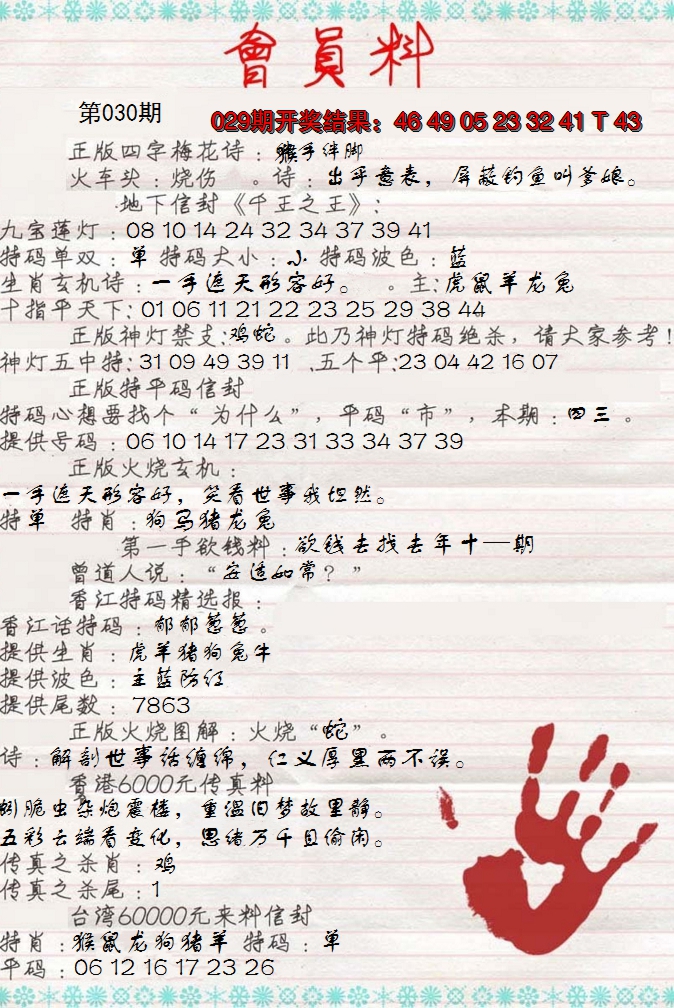 會員料
第030期
029期开奖结果：46 49 05 23 32 41 T 43
正版四字梅花诗：猴手绊脚
火车头：烧伤 。诗：出乎意表，屏蔽钓鱼叫爹娘。
地下信封《千王之王》：
九宝莲灯：08 10 14 24 32 34 37 39 41
特码单双：单 特码大小：小 特码波色：蓝
生肖玄机诗：一手遮天形容好。 。主：虎鼠羊龙兔
十指平天下：01 06 11 21 22 23 25 29 38 44
正版神灯禁支：鸡蛇。此乃神灯特码绝杀，请大家参考！
神灯五中特：31 09 49 39 11 .五个平：23 04 42 16 07
正版特平码信封
特码心想要找个“为什么”，平码“市”，本期：四三。
提供号码：06 10 14 17 23 31 33 34 37 39
正版火烧玄机：
一手遮天形容好，笑看世事我坦然。
特单 特肖：狗马猪龙兔
第一手欲钱料：欲钱去找去年十一期
曾道人说：“安适如常？”
香江特码精选报：
香江话特码：郁郁葱葱。
提供生肖：虎羊猪狗兔牛
提供波色：主蓝防红
提供尾数：7863
正版火烧图解：火烧“蛇”。
诗：解剖世事话缠绵，仁义厚黑两不误。
香港6000元传真料
脆虫杂炮震楼，重温旧梦故里静。
五彩云端看变化，思绪万千且偷闲。
传真之杀肖：鸡
传真之杀尾：1
台湾60000元来料信封
特肖：猴鼠龙狗猪羊 特码：单
平码：06 12 16 17 23 26